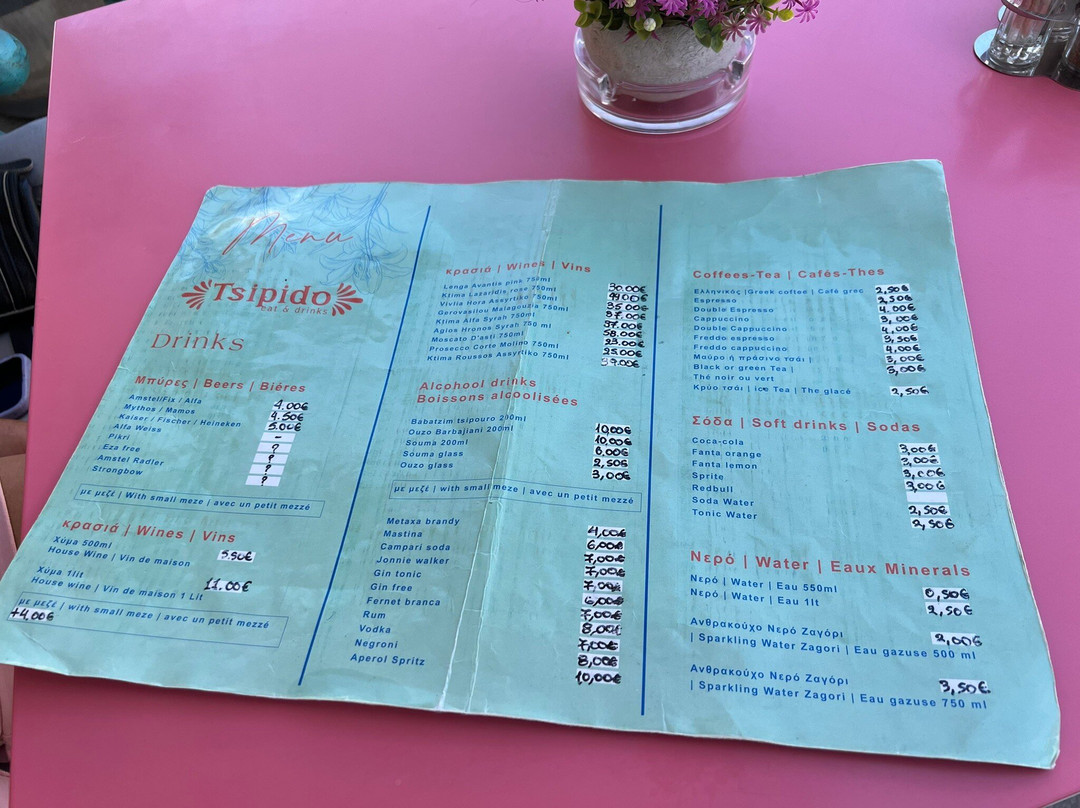 Menu
Tsipido
eat & drinks
Drinks
Μπύρες | Beers | Biéres
Amstel/Fix / Alfa 4.00€
Mythos / Mamos 4.50€
Kaiser / Fischer / Heineken 5.00€
Alfa Weiss –
Pikri ?
Eza free ?
Amstel Radler ?
Strongbow ?
με μεζέ | With small meze | avec un petit mezzé
κρασιά | Wines | Vins
Χύμα 500ml
House Wine | Vin de maison 5.50€
Χύμα 1lit
House wine | Vin de maison 1 Lit 11.00€
με μεζέ | with small meze | avec un petit mezzé
+4,00€
κρασιά | Wines | Vins
Lenga Avantis pink 750ml 30.00€
Ktima Lazaridis rose 750ml
Vivlia Hora Assyrtiko 750ml 35.00€
Gerovasilou Malagouzia 750ml 37.00€
Ktima Alfa Syrah 750ml 37.00€
Agios Hronos Syrah 750 ml 58.00€
Moscato D'asti 750ml 23.00€
Prosecco Corte Molino 750ml 25.00€
Ktima Roussos Assyrtiko 750ml
Alcohool drinks
Boissons alcoolisées
Babatzim tsipouro 200ml 10,00€
Ouzo Barbajiani 200ml 10,00€
Souma 200ml 8,00€
Souma glass 2,50€
Ouzo glass 3,00€
με μεζέ | with small meze | avec un petit mezzé
Metaxa brandy 4,00€
Mastina 6,00€
Campari soda 7,00€
Jonnie walker 7,00€
Gin tonic 7,00€
Gin free 6,00€
Fernet branca 7,00€
Rum 8,00€
Vodka 7,00€
Negroni 8,00€
Aperol Spritz 10,00€
Coffees-Tea | Cafés-Thes
Ελληνικός |Greek coffee | Café grec 2,50€
Espresso 2,50€
Double Espresso 4.00€
Cappuccino 3,00€
Double Cappuccino 4,00€
Freddo espresso 3,50€
Freddo cappuccino 4,00€
Μαύρο ή πράσινο τσάι | 3,00€
Black or green Tea | 3,00€
Thé noir ou vert
Κρύο τσάι | ice Tea | The glacé 2,50€
Σόδα | Soft drinks | Sodas
Coca-cola 3,00€
Fanta orange 3,00€
Fanta lemon 3,00€
Sprite 3,00€
Redbull
Soda Water 2,50€
Tonic Water 2,50€
Νερό | Water | Eaux Minerals
Νερό | Water | Eau 550ml 0,50€
Νερό | Water | Eau 1lt 2,50€
Ανθρακούχο Νερό Ζαγόρι 2,00€
| Sparkling Water Zagori | Eau gazuse 500 ml
Ανθρακούχο Νερό Ζαγόρι 3,50€
| Sparkling Water Zagori | Eau gazuse 750 ml